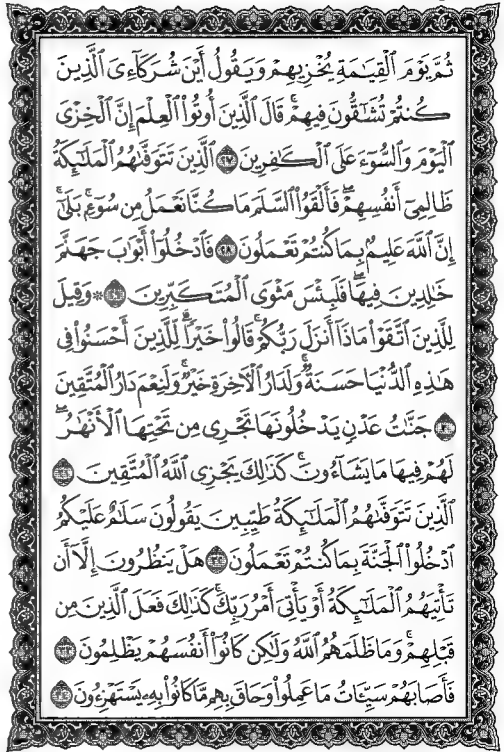 ثُمَّ يَوْمَ ٱلْقِيَٰمَةِ يُخْزِيهِمْ وَيَقُولُ أَيْنَ شُرَكَآءِىَ ٱلَّذِينَ
كُنتُمْ تُشَٰٓقُّونَ فِيهِمْ ۚ قَالَ ٱلَّذِينَ أُوتُوا۟ ٱلْعِلْمَ إِنَّ ٱلْخِزْىَ
ٱلْيَوْمَ وَٱلسُّوٓءَ عَلَى ٱلْكَٰفِرِينَ ٢٧ ٱلَّذِينَ تَتَوَفَّىٰهُمُ ٱلْمَلَٰٓئِكَةُ
ظَالِمِىٓ أَنفُسِهِمْ ۖ فَأَلْقَوُا۟ ٱلسَّلَمَ مَا كُنَّا نَعْمَلُ مِن سُوٓءٍۭ ۚ بَلَىٰٓ
إِنَّ ٱللَّهَ عَلِيمٌۢ بِمَا كُنتُمْ تَعْمَلُونَ ٢٨ فَٱدْخُلُوٓا۟ أَبْوَٰبَ جَهَنَّمَ
خَٰلِدِينَ فِيهَا ۖ فَلَبِئْسَ مَثْوَى ٱلْمُتَكَبِّرِينَ ٢٩ ۞ وَقِيلَ
لِلَّذِينَ ٱتَّقَوْا۟ مَاذَآ أَنزَلَ رَبُّكُمْ ۚ قَالُوا۟ خَيْرًا ۗ لِّلَّذِينَ أَحْسَنُوا۟ فِى
هَٰذِهِ ٱلدُّنْيَا حَسَنَةٌ ۚ وَلَدَارُ ٱلْءَاخِرَةِ خَيْرٌ ۚ وَلَنِعْمَ دَارُ ٱلْمُتَّقِينَ
٣٠ جَنَّٰتُ عَدْنٍ يَدْخُلُونَهَا تَجْرِى مِن تَحْتِهَا ٱلْأَنْهَٰرُ ۖ
لَهُمْ فِيهَا مَا يَشَآءُونَ ۚ كَذَٰلِكَ يَجْزِى ٱللَّهُ ٱلْمُتَّقِينَ ٣١
ٱلَّذِينَ تَتَوَفَّىٰهُمُ ٱلْمَلَٰٓئِكَةُ طَيِّبِينَ يَقُولُونَ سَلَٰمٌ عَلَيْكُمُ
ٱدْخُلُوا۟ ٱلْجَنَّةَ بِمَا كُنتُمْ تَعْمَلُونَ ٣٢ هَلْ يَنظُرُونَ إِلَّآ أَن
تَأْتِيَهُمُ ٱلْمَلَٰٓئِكَةُ أَوْ يَأْتِىَ أَمْرُ رَبِّكَ ۚ كَذَٰلِكَ فَعَلَ ٱلَّذِينَ مِن
قَبْلِهِمْ ۚ وَمَا ظَلَمَهُمُ ٱللَّهُ وَلَٰكِن كَانُوٓا۟ أَنفُسَهُمْ يَظْلِمُونَ ٣٣
فَأَصَابَهُمْ سَيِّـَٔاتُ مَا عَمِلُوا۟ وَحَاقَ بِهِم مَّا كَانُوا۟ بِهِۦ يَسْتَهْزِءُونَ ٣٤